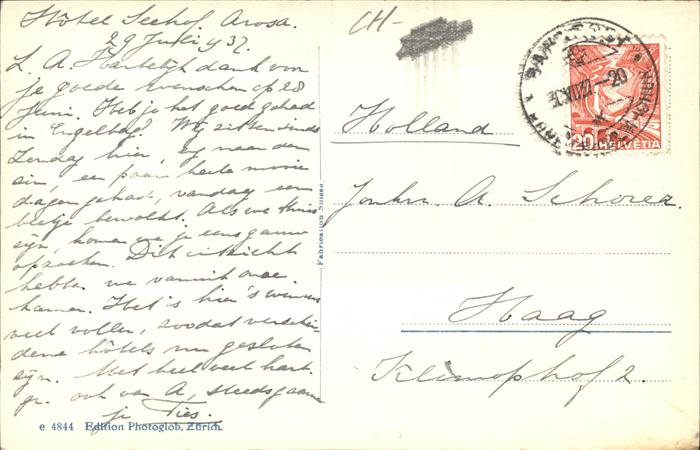 Hôtel Seehof Arosa.
29 Juli '37.
L. A. Hartelijk dank voor
je goede wenschen op 28
Juni. Heb je het goed gehad
in Engelberg? Wij zitten sinds
Zondag hier, naar den
zin, een paar heele mooie
dagen gehad, vandaag een
beetje bewolkt. Als we thuis
zijn, komen we je eens gauw
opzoeken. Dit uitzicht
hebben we vanuit onze
kamer. Het is hier 's winters
veel voller, zoodat verschei-
dene hôtels nu gesloten
zijn. Met heel veel hart.
gr. ook van A, steeds gaarne
je Ties.
CH-
Holland
Jonkvr. A. Schorer
Haag
Klimophof 2.
20 HELVETIA
Fabrication Suisse
e 4844 Edition Photoglob, Zürich.